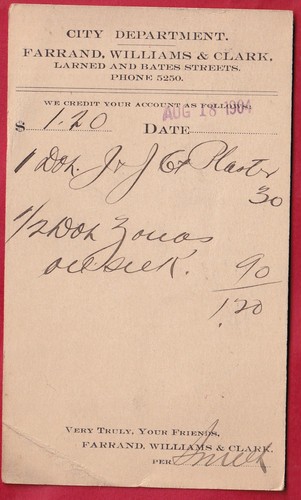 CITY DEPARTMENT.
FARRAND, WILLIAMS & CLARK,
LARNED AND BATES STREETS.
PHONE 5250.
WE CREDIT YOUR ACCOUNT AS FOLLOWS:
$ 1.20 DATE AUG 18 1904
1 Doz. J & J Plaster
30
1/2 Doz
oil silk. 90
1.20
VERY TRULY, YOUR FRIENDS,
FARRAND, WILLIAMS & CLARK.
PER Smith